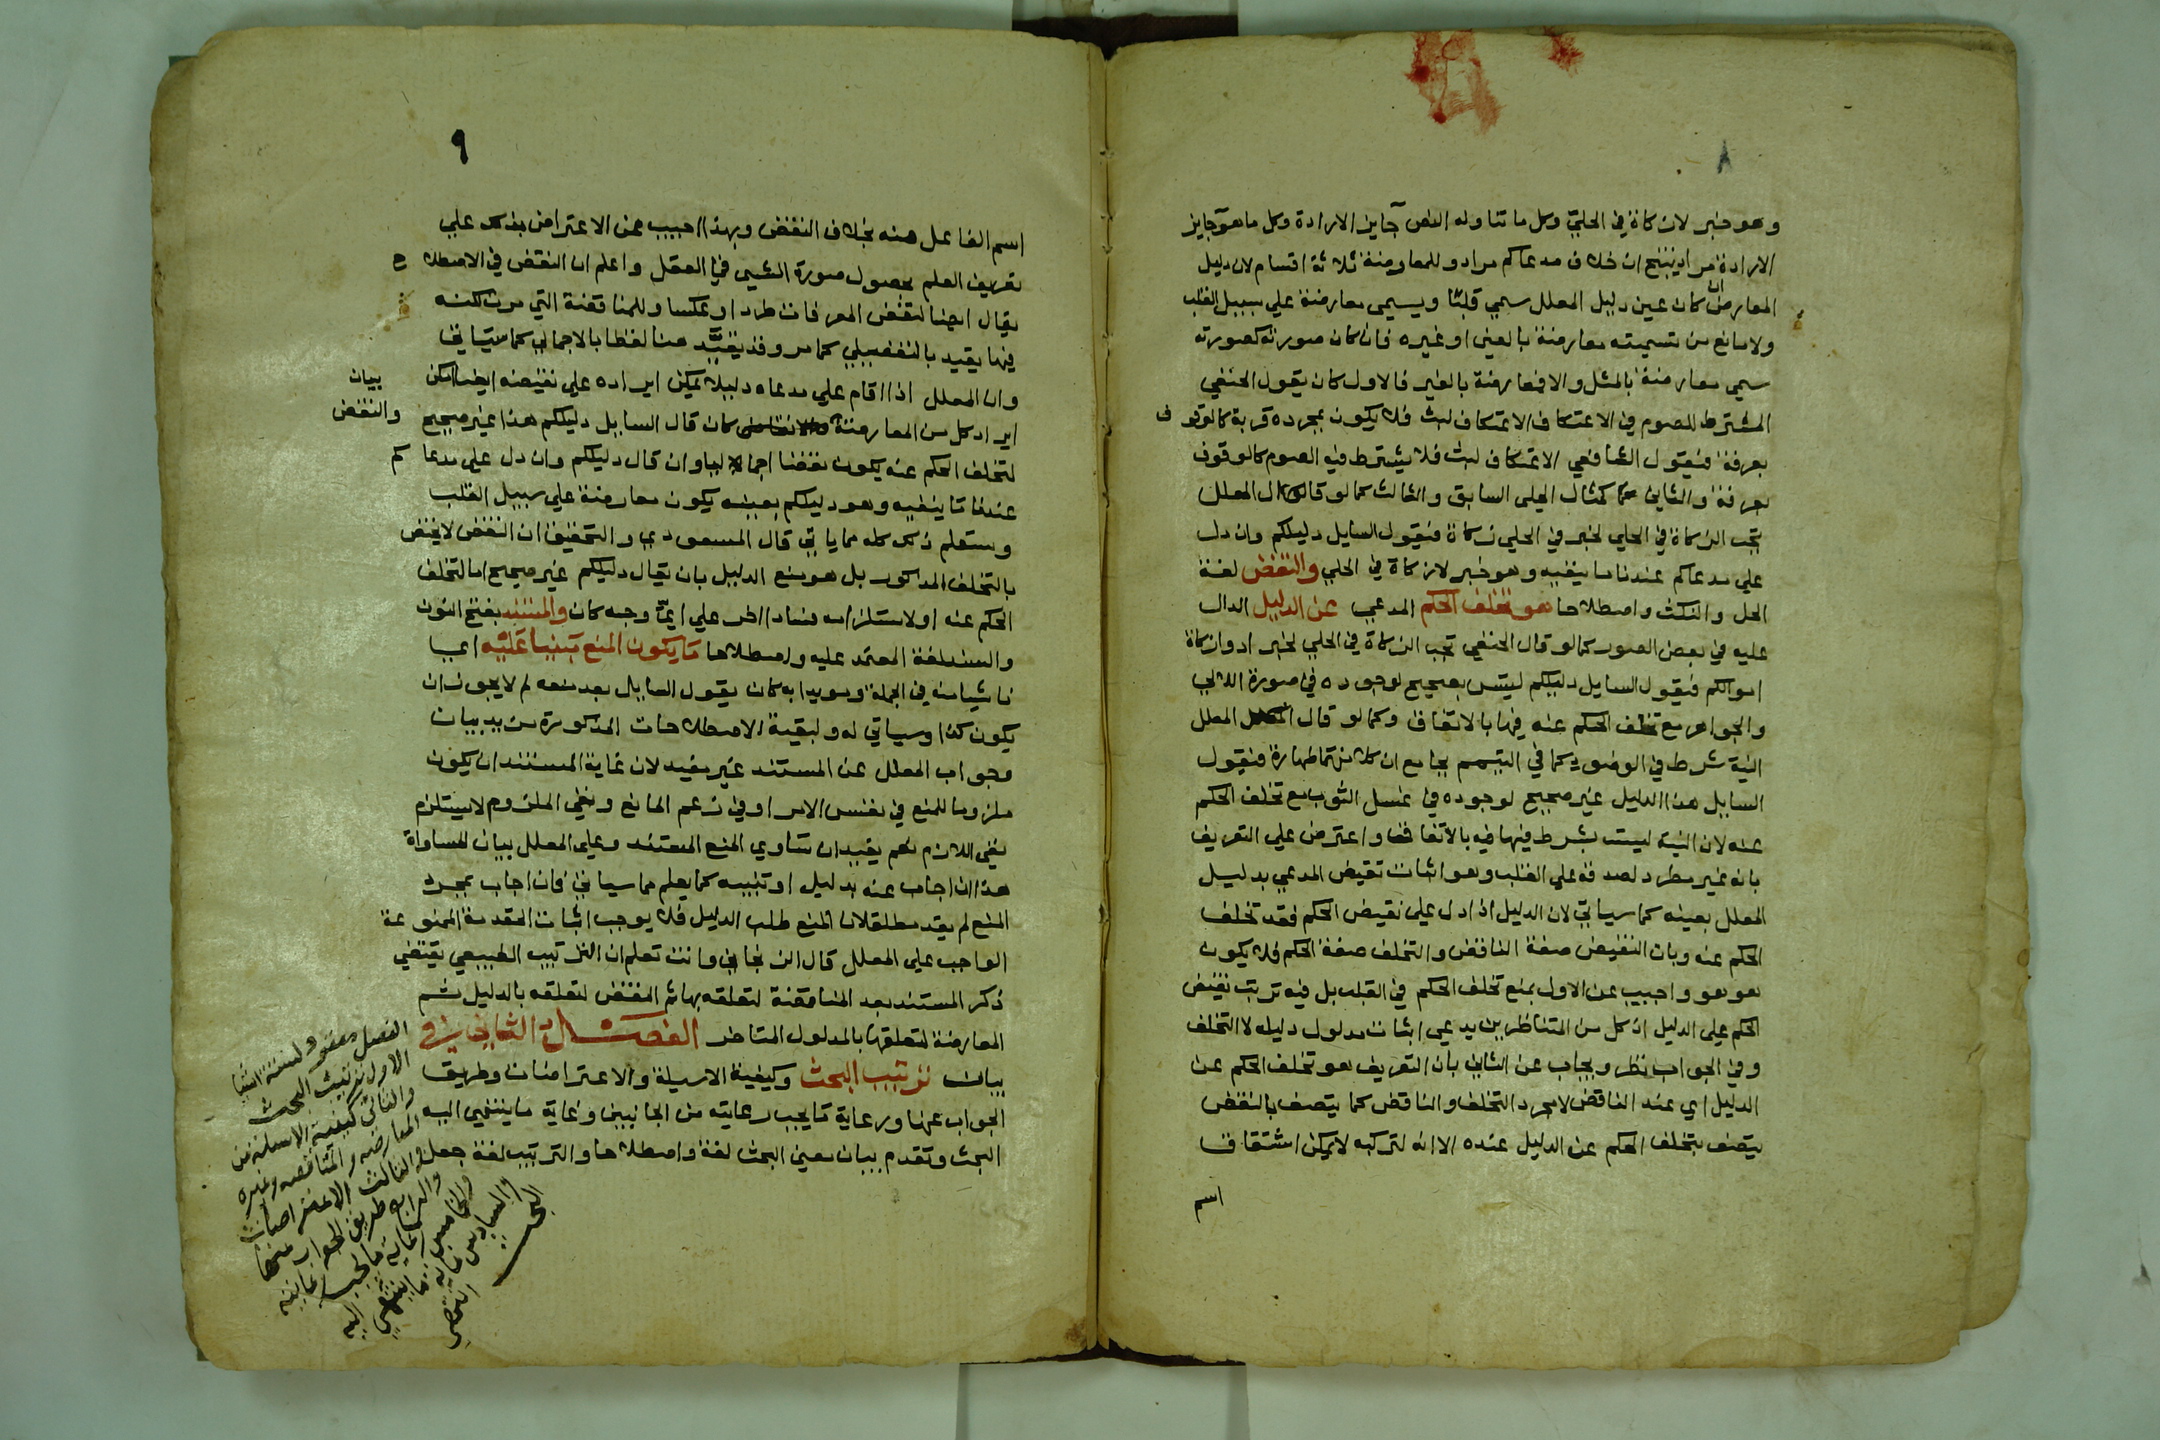 ٨
وهو خبر لازكاة في الحلي وكل ما تناوله النص جايز الارادة وكل ما هو جايز
الارادة مراد ينتج ان خلاف مدعاكم مراد وللمعارضة ثلاثة اقسام لان دليل
المعارض ان كان عين دليل المعلل سمي قلبا ويسمى معارضة على سبيل القلب
ولا مانع من تسميته معارضة بالعين او غيره فان كان صورته كصورته
سمي معارضة بالمثل والا فمعارضة بالغير فالاول كان يقول الحنفي
المشترط للصوم في الاعتكاف الاعتكاف لبث فلا يكون بمجرده قربة كالوقوف
بعرفة فيقول الشافعي الاعتكاف لبث فلا يشترط فيه الصوم كالوقوف
بعرفة والثاني كمثال الحلي السابق والثالث كما لو قال المعلل
تجب الزكاة في الحلي لخبر في الحلي زكاة فيقول السايل دليلكم وان دل
على مدعاكم عندنا ما ينفيه وهو خبر لازكاة في الحلي والنقض لغة
الحل والنكث واصطلاحا هو تخلف الحكم المدعي عن الدليل الدال
عليه في بعض الصور كما لو قال الحنفي تجب الزكاة في الحلي لخبر ادوا زكاة
اموالكم فيقول السايل دليلكم ليس بصحيح لوجوده في صورة اللالي
والجواهر مع تخلف الحكم عنه فيها بالاتفاق وكما لو قال المعلل
النية شرط في الوضوء كما في التيمم بجامع ان كلا منهما طهارة فيقول
السايل هذا الدليل غير صحيح لوجوده في غسل الثوب مع تخلف الحكم
عنه لان النية ليست بشرط فيها فيه بالاتفاق واعترض على التعريف
بانه غير مطرد لصدقه على القلب وهو اثبات نقيض المدعي بدليل
المعلل بعينه كما سياتي لان الدليل اذا دل على نقيض الحكم فقد تخلف
الحكم عنه وبان النقيض صفة الناقض والتخلف صفة الحكم فلا يكون
هو هو واجيب عن الاول بمنع تخلف الحكم في القلب بل فيه ترتب نقيض
الحكم على الدليل اذ كل من المتناظرين يدعي اثبات مدلول دليله لا التخلف
وفي الجواب نظر ويجاب عن الثاني بان التعريف هو تخلف الحكم عن
الدليل اي عند الناقض لا مجرد التخلف والناقض كما يتصف بالنقض
يتصف بتخلف الحكم عن الدليل عنده الا انه لتركبه لا يمكن اشتقاق
اسم
٩
اسم الفاعل منه بخلاف النقض وبهذا اجيب عن الاعتراض بذلك على
تعريف العلم بحصول صورة الشيى في العقل واعلم ان النقض في الاصطلاح
يقال ايضا لنقض المعرفات طردا وعكسا وللمناقضة التي مرت لكنه
فيها يقيد بالتفصيلي كما مر وقد يقيد هنا لفظا بالاجمالي كما سياتي
وان المعلل اذا اقام على مدعاه دليلا يمكن ايراده على نقيضه ايضا امكن بيان
ايراد كل من المعارضة والنقض كان قال السايل دليلكم هذا غير صحيح
لتخلف الحكم عنه يكون نقضا اجماليا وان قال دليلكم وان دل على مدعاكم
عندنا ما ينفيه وهو دليلكم بعينه يكون معارضة على سبيل القلب
وستعلم ذلك كله مما ياتي قال المسعودي والتحقيق ان النقض لا يختص
بالتخلف المذكور بل هو منع الدليل بان يقال دليلكم غير صحيح اما لتخلف
الحكم عنه او لاستلزامه فسادا اخر على ايما وجه كان والمستند بفتح النون
والسند لغة المعتمد عليه واصطلاحا ما يكون المنع مبنيا عليه اي
ناشيا منه في الجملة ومويدا به كان يقول السايل بعد منعه لم لا يجوز ان
يكون كذا وسياتي له ولبقية الاصطلاحات المذكورة مزيد بيان
وجواب المعلل عن المستند غير مفيد لان غاية المستند ان يكون
ملزوما للمنع في نفس الامر او في زعم المانع ونفي الملزوم لا يستلزم
نفي اللازم نعم يفيد ان تساوي المنع المستند وعلى المعلل بيان المساواة
هذا ان اجاب عنه بدليل او تنبيه كما يعلم مما سياتي فان اجاب بمجرد
المنع لم يفد مطلقا لان المنع طلب الدليل فلا يوجب اثبات المقدمة الممنوعة
الواجب على المعلل قال الزنجاني وانت تعلم ان الترتيب الطبيعي يقتضي
ذكر المستند بعد المناقضة لتعلقه بها ثم النقض لتعلقه بالدليل ثم
المعارضة لتعلقها بالمدلول المتاخر الفصل الثاني في
بيان ترتيب البحث وكيفية الاسيلة والاعتراضات وطريق
الجواب عنها ورعاية ما يجب رعايته من الجانبين وغاية ما ينتهي اليه
البحث وتقدم بيان معنى البحث لغة واصطلاحا والترتيب لغة جعل
الفصل معقود لستة اشيا
الاول ترتيب البحث
والثاني كيفية الاسيلة من
المعارضه والمناقضه وغيره
والثالث الاعتراضات
والرابع طريق الجواب عنها
والخامس رعاية ما يجب رعايته
والسادس غاية ما ينتهي اليه
البحث